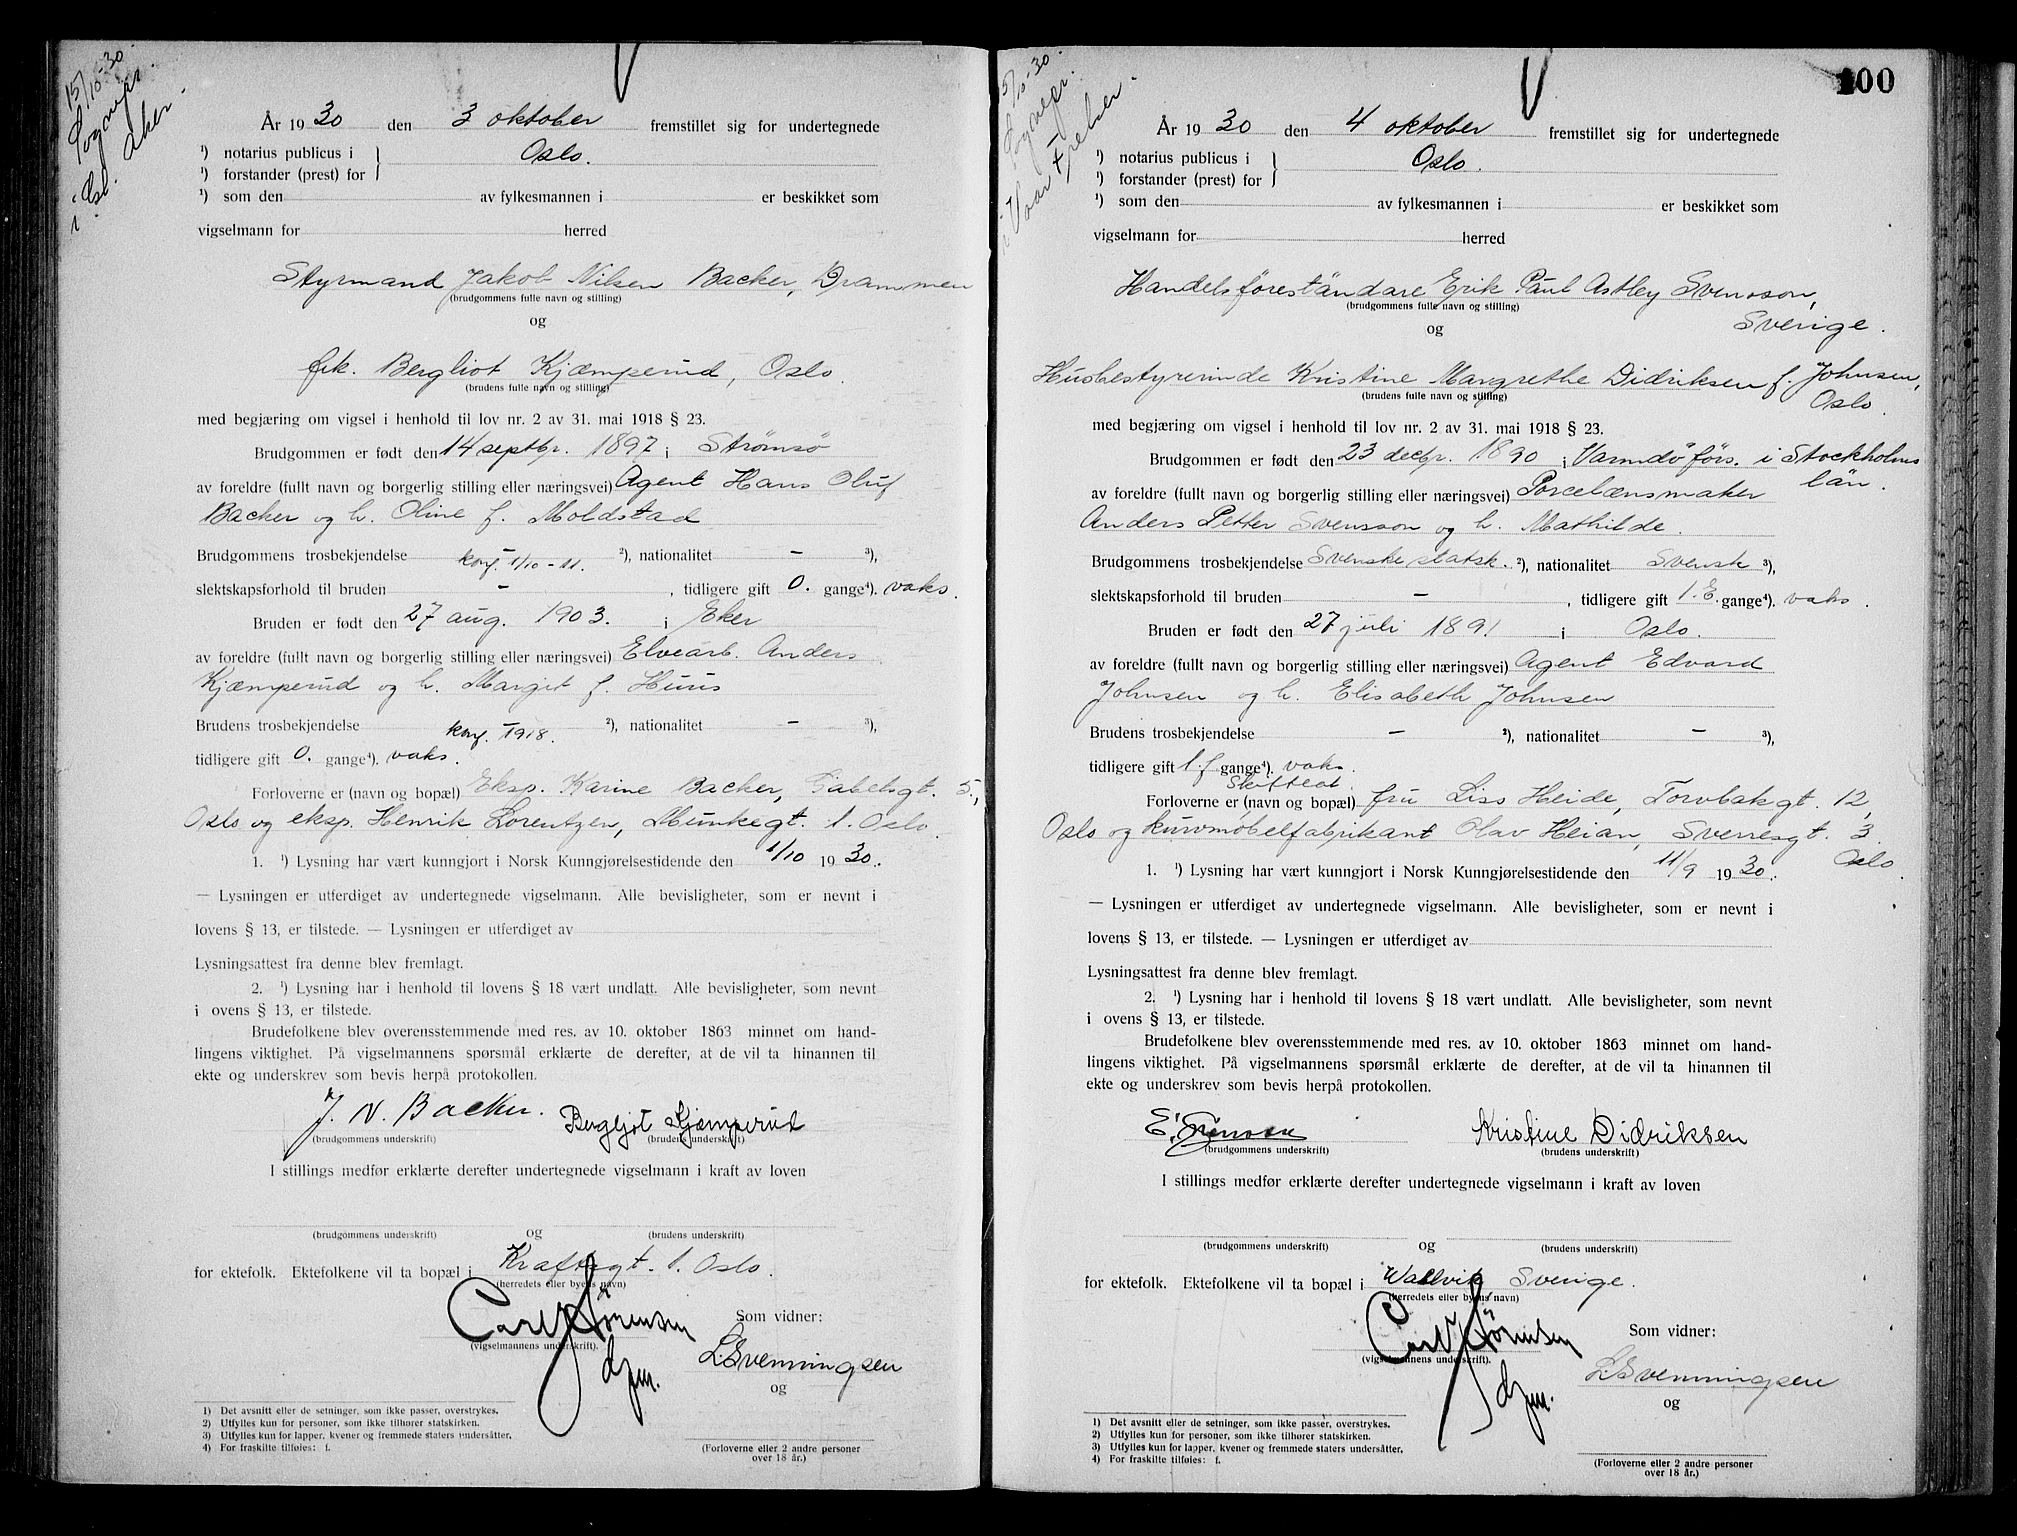 15/10-30
Sogmepr.
i Øst. Aker.
År 1930 den 3 oktober fremstillet sig for undertegnede
¹) notarius publicus i } Oslo.
¹) forstander (prest) for
¹) som den av fylkesmannen i er beskikket som
vigselmann for herred
Styrmand Jakob Nilsen Backer, Drammen
(brudgommens fulle navn og stilling)
og
frk. Bergliot Kjæmperud, Oslo.
(brudens fulle navn og stilling)
med begjæring om vigsel i henhold til lov nr. 2 av 31. mai 1918 § 23.
Brudgommen er født den 14 septbr. 1897 i Strømsø
av foreldre (fullt navn og borgerlig stilling eller næringsvei) Agent Hans Oluf
Backer og h. Oline f. Moldstad
Brudgommens trosbekjendelse - ²), nationalitet - ³),
konf. 1/10-11.
slektskapsforhold til bruden - , tidligere gift 0. gange⁴). vaks.
Bruden er født den 27 aug. 1903. i Eker
av foreldre (fullt navn og borgerlig stilling eller næringsvei) Elvearb. Anders
Kjæmperud og h. Margit f. Huus
Brudens trosbekjendelse - ²), nationalitet - ³),
konf. 1918.
tidligere gift 0. gange⁴). vaks.
Forloverne er (navn og bopæl) Eksp. Karine Backer, Gabelsgt. 5.,
Oslo og eksp. Henrik Lorentzen, Munkegt. 1. Oslo.
1. ¹) Lysning har vært kunngjort i Norsk Kunngjørelsestidende den 1/10 1930.
— Lysningen er utferdiget av undertegnede vigselmann. Alle bevisligheter, som er nevnt i
lovens § 13, er tilstede. — Lysningen er utferdiget av
Lysningsattest fra denne blev fremlagt.
2. ¹) Lysning har i henhold til lovens § 18 vært undlatt. Alle bevisligheter, som nevnt
i ovens § 13, er tilstede.
Brudefolkene blev overensstemmende med res. av 10. oktober 1863 minnet om hand-
lingens viktighet. På vigselmannens spørsmål erklærte de derefter, at de vil ta hinannen til
ekte og underskrev som bevis herpå protokollen.
J. N. Backer. Bergljot Kjæmperud
(brudgommens underskrift) (brudens underskrift)
I stillings medfør erklærte derefter undertegnede vigselmann i kraft av loven
og
(brudgommens underskrift) (brudens underskrift)
for ektefolk. Ektefolkene vil ta bopæl i Kraftsgt. 1. Oslo.
(herredets eller byens navn)
Carl Sørensen
(vigselmannens underskrift).
Som vidner:
L. Svenningsen
og
1) Det avsnitt eller de setninger, som ikke passer, overstrykes.
2) Utfylles kun for personer, som ikke tilhører statskirken.
3) Utfylles kun for lapper, kvener og fremmede staters undersåtter.
4) For fraskilte tilføies: f.
(Forloverne eller 2 andre personer
over 18 år.)
100
15/10-30
Sognepr.
i Vaar Frelser.
År 1930 den 4 oktober fremstillet sig for undertegnede
¹) notarius publicus i } Oslo.
¹) forstander (prest) for
¹) som den av fylkesmannen i er beskikket som
vigselmann for herred
Handelsföreståndare Erik Paul Astley Svensson,
(brudgommens fulle navn og stilling)
og Sverige.
Husbestyrerinde Kristine Margrethe Didriksen f. Johnsen,
(brudens fulle navn og stilling) Oslo.
med begjæring om vigsel i henhold til lov nr. 2 av 31. mai 1918 § 23.
Brudgommen er født den 23 decbr. 1890 i Varmdö förs. i Stockholms
län.
av foreldre (fullt navn og borgerlig stilling eller næringsvei) Porcelænsmaker
Anders Petter Svensson og h. Mathilde.
Brudgommens trosbekjendelse Svenske statsk. ²), nationalitet Svensk ³),
slektskapsforhold til bruden - , tidligere gift 1. E. gange⁴). vaks.
Bruden er født den 27 juli 1891 i Oslo.
av foreldre (fullt navn og borgerlig stilling eller næringsvei) Agent Edvard
Johnsen og h. Elisabeth Johnsen
Brudens trosbekjendelse - ²), nationalitet - ³),
tidligere gift 1. f. gange⁴). vaks.
Skifteat.
Forloverne er (navn og bopæl) fru Liss Heide, Torvbakgt. 12,
Oslo og kurvmøbelfabrikant Olav Heian, Sverresgt. 3
Oslo.
1. ¹) Lysning har vært kunngjort i Norsk Kunngjørelsestidende den 11/9 1930.
— Lysningen er utferdiget av undertegnede vigselmann. Alle bevisligheter, som er nevnt i
lovens § 13, er tilstede. — Lysningen er utferdiget av
Lysningsattest fra denne blev fremlagt.
2. ¹) Lysning har i henhold til lovens § 18 vært undlatt. Alle bevisligheter, som nevnt
i ovens § 13, er tilstede.
Brudefolkene blev overensstemmende med res. av 10. oktober 1863 minnet om hand-
lingens viktighet. På vigselmannens spørsmål erklærte de derefter, at de vil ta hinannen til
ekte og underskrev som bevis herpå protokollen.
E. Svensson Kristine Didriksen
(brudgommens underskrift) (brudens underskrift)
I stillings medfør erklærte derefter undertegnede vigselmann i kraft av loven
og
(brudgommens underskrift) (brudens underskrift)
for ektefolk. Ektefolkene vil ta bopæl i Wallvik Sverige.
(herredets eller byens navn)
Carl Sørensen
(vigselmannens underskrift).
Som vidner:
L. Svenningsen
og
1) Det avsnitt eller de setninger, som ikke passer, overstrykes.
2) Utfylles kun for personer, som ikke tilhører statskirken.
3) Utfylles kun for lapper, kvener og fremmede staters undersåtter.
4) For fraskilte tilføies: f.
(Forloverne eller 2 andre personer
over 18 år.)